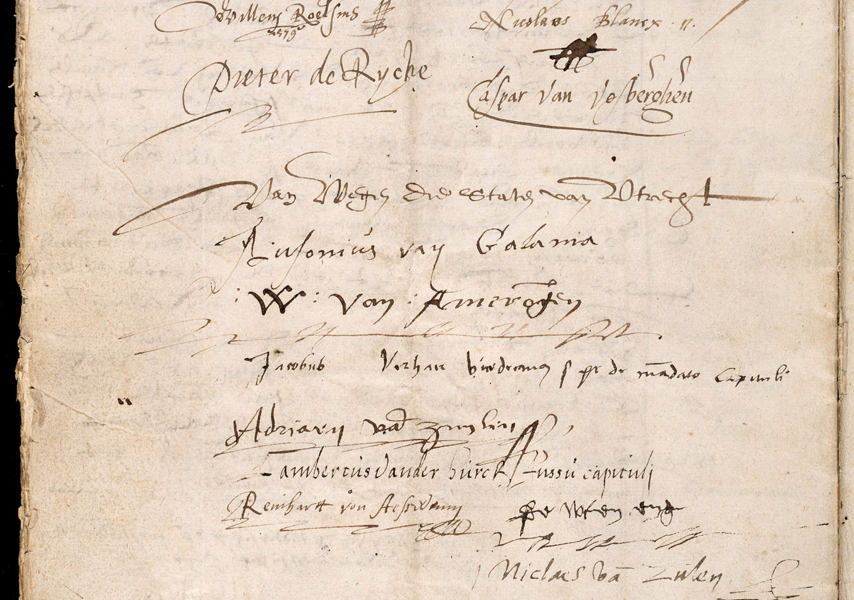 Willem Roelsius
1579
Nicolaes Blancx
Pieter de Rycke
Caspar van vosberghen
Van Wegen die Staten van Utrecht
Ausonius van Galama
W: van: Amerongen
Jacobus Verhaer vicedecanus de mandato Capituli
Adriaen van Zuylen
Lambertus vander burch Jussu capituli
Reinhart von Aeswinn
de wten eng
Niclaes van Zulen